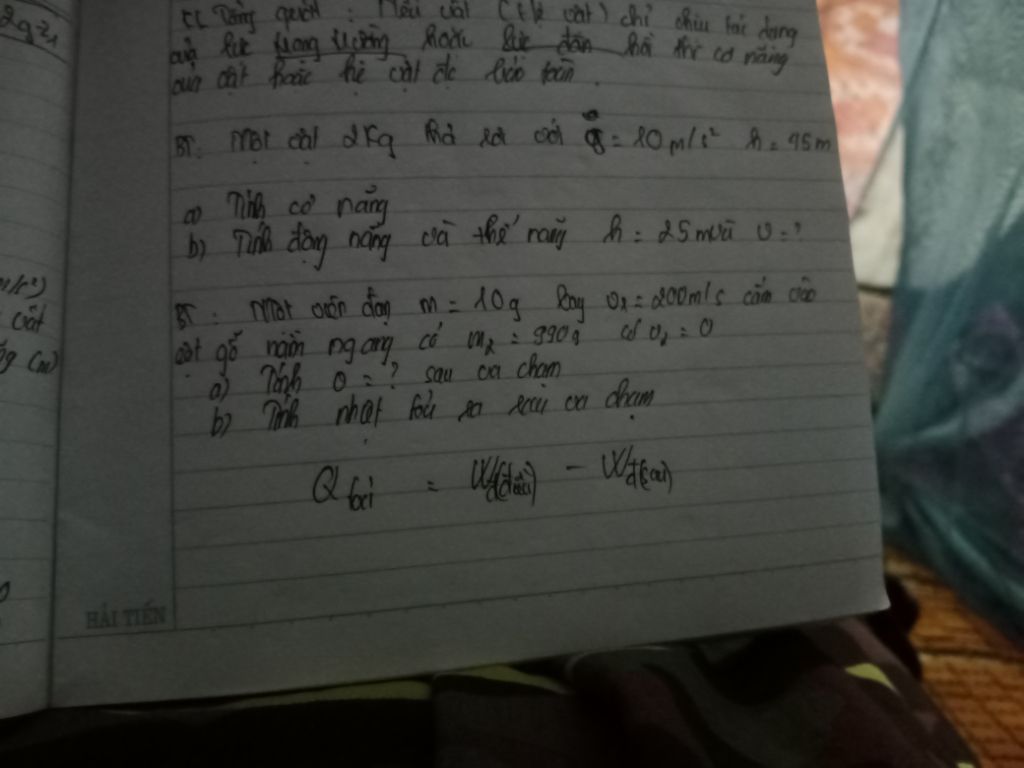 2gz1
Tổng quát: Nếu vật (hệ vật) chỉ chịu tác dụng
của lực trọng trường hoặc lực đàn hồi thì cơ năng
của vật hoặc hệ vật đc bảo toàn.
BT: Một vật 2Kg thả rơi với g = 10 m/s² h = 45m
a) Tính cơ năng
b) Tính động năng và thế năng h = 25m và v = ?
m/s²)
vật
(m)
BT: Một viên đạn m = 10g bay v₁ = 200m/s cắm vào
vật gỗ nằm ngang có m₂ = 990g có v₂ = 0
a) Tính v = ? sau va chạm
b) Tính nhiệt tỏa ra sau va chạm
Q tỏa = Wđ(đầu) - Wđ(sau)
HẢI TIẾN